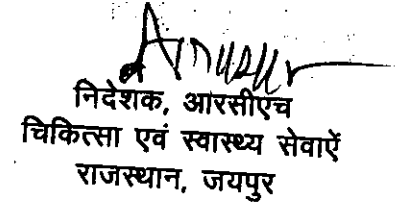 निदेशक, आरसीएच
चिकित्सा एवं स्वास्थ्य सेवाऐं
राजस्थान, जयपुर